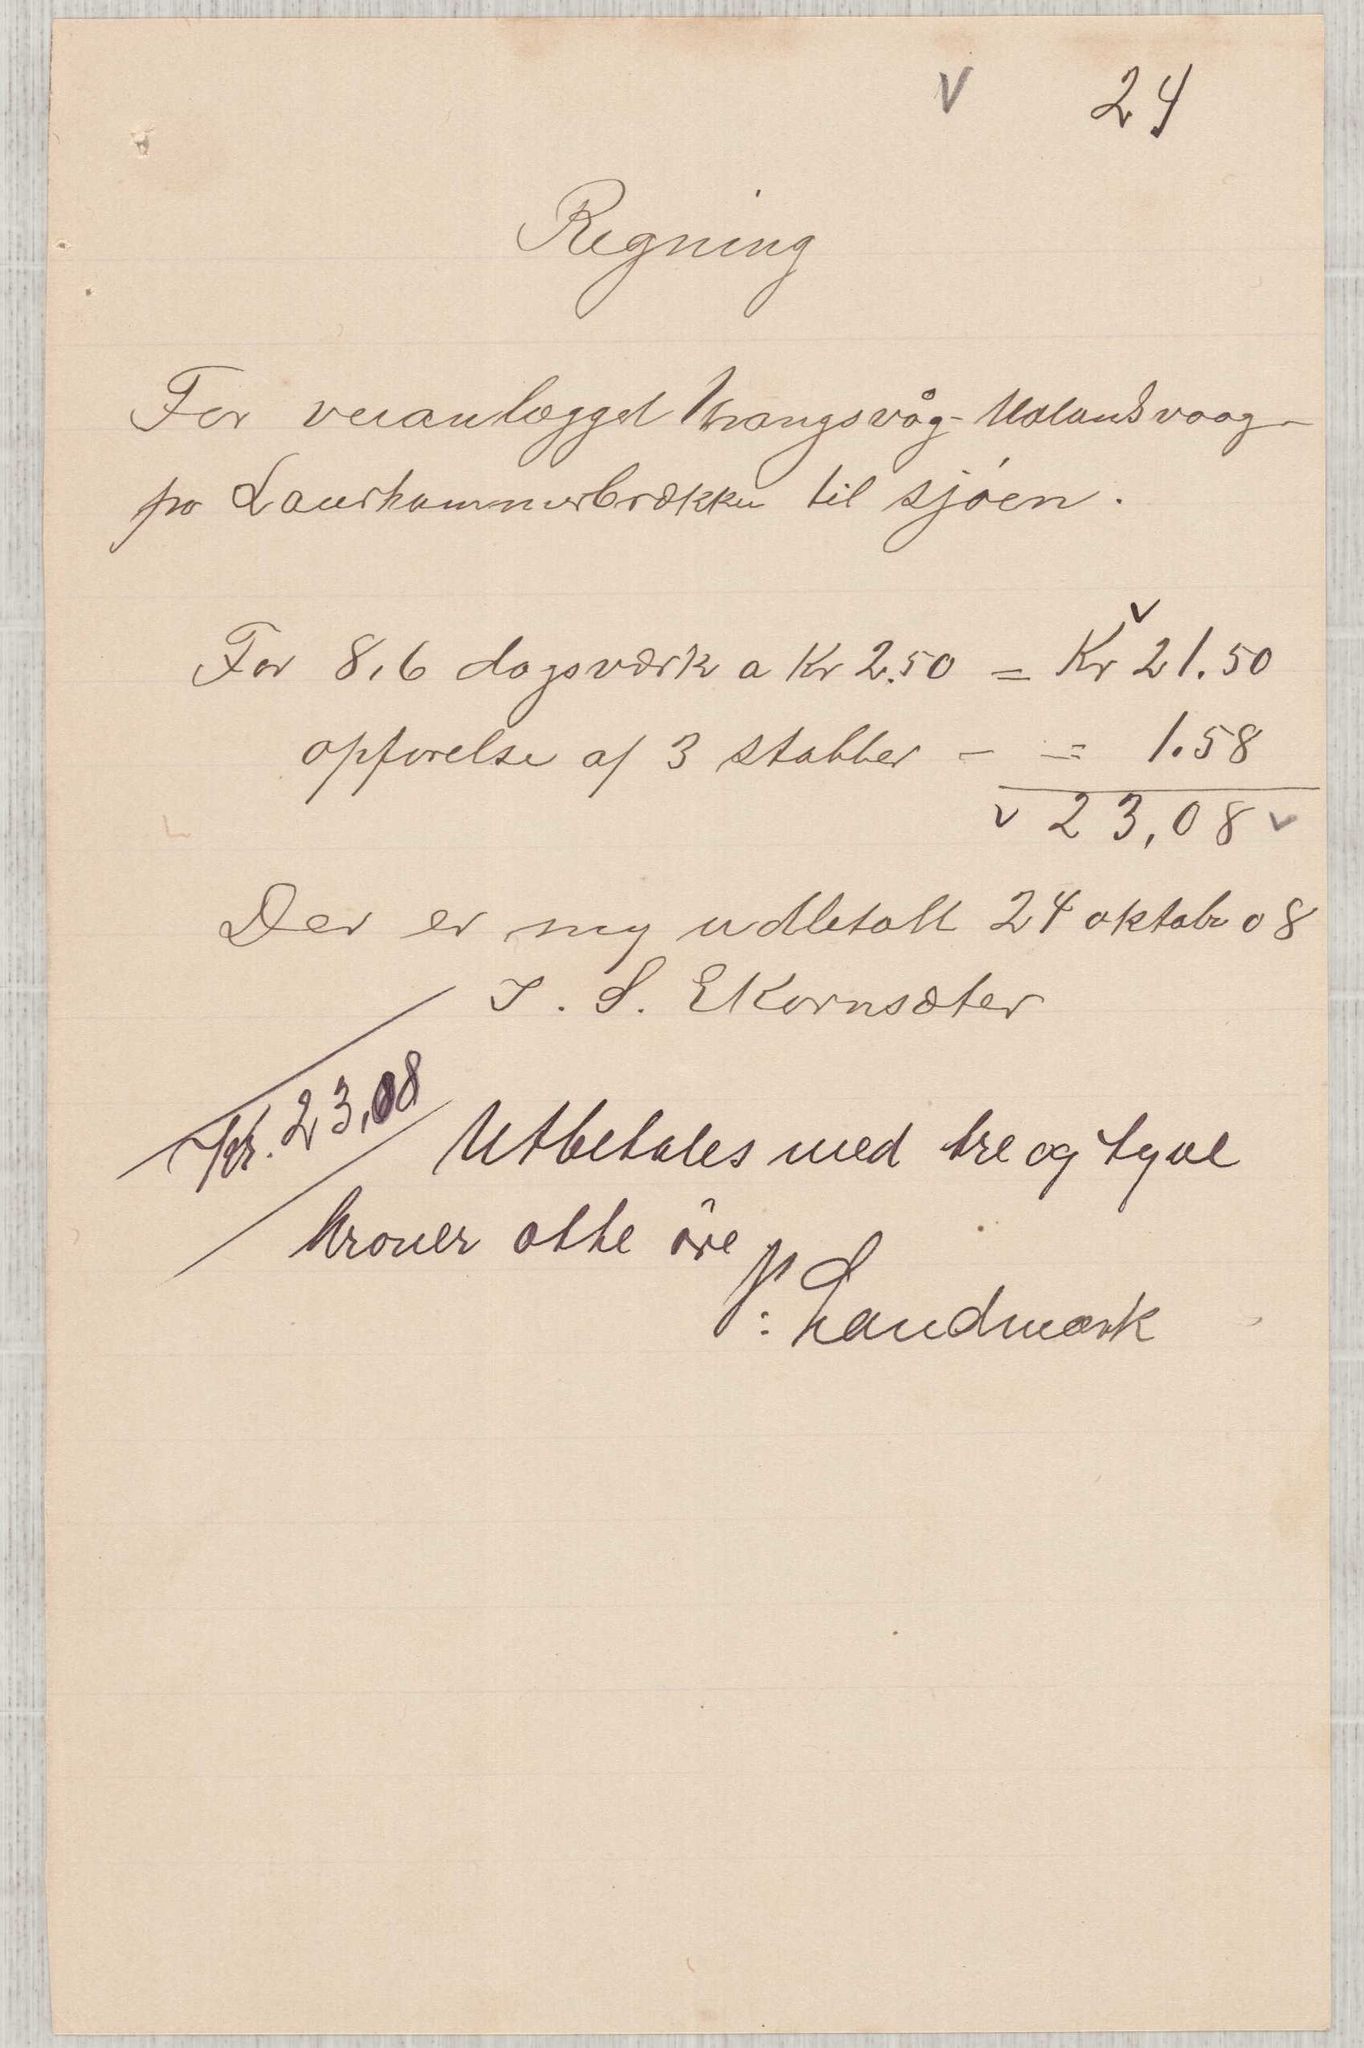 V 24
Regning
For veianlægget Vrangsvåg - Ualandsvaag -
fra Laurhammerbrækken til sjöen.
For 8,6 dagsværk a Kr 2.50 = Kr 21.50
opførelse af 3 stabber - = 1.58
23,08
Der er mig udbetalt 24 oktobr 08
S. Ekornsæter
Kr. 23,08
Utbetales med tre og tyve
kroner otte öre
N: Landmark